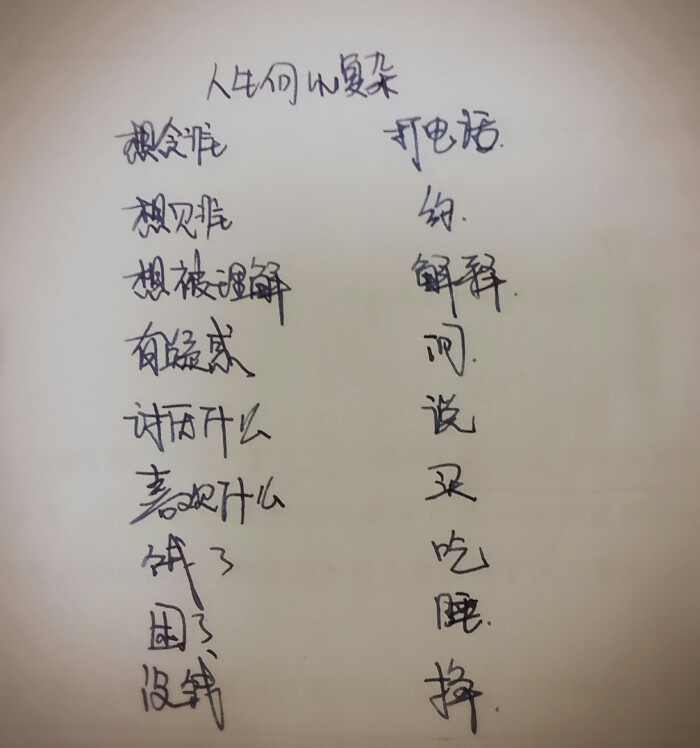 人生何以复杂
想念谁 打电话.
想见谁 约.
想被理解 解释.
有疑惑 问.
讨厌什么 说
喜欢什么 买
饿了 吃
困了 睡.
没钱 挣.